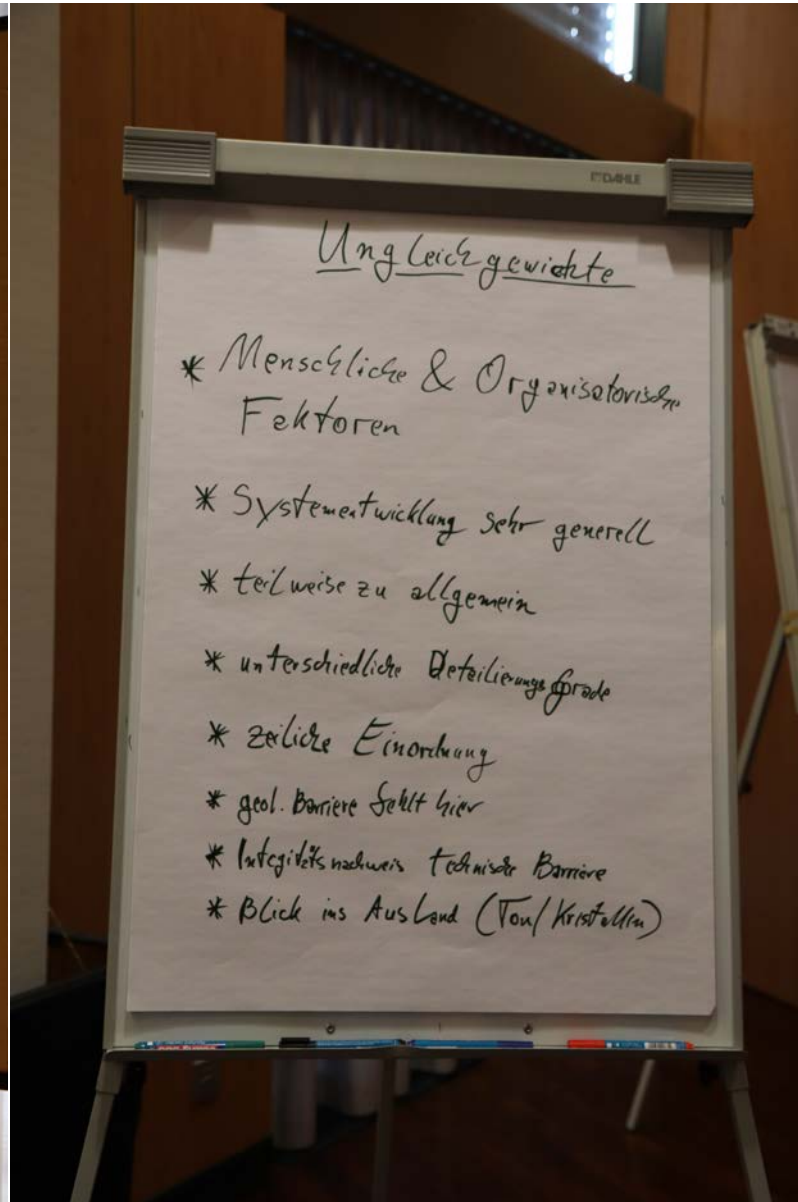 DAHLE
Ungleichgewichte
* Menschliche & Organisatorische
Faktoren
* Systementwicklung sehr generell
* teilweise zu allgemein
* unterschiedliche Detailierungsgrade
* zeiliche Einordnung
* geol. Barriere fehlt hier
* Integritätsnachweis technische Barriere
* Blick ins Ausland (Ton/Kristallin)